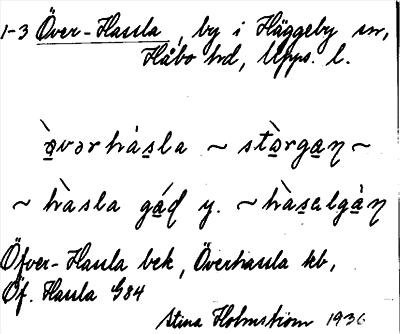 1-3 Över-Hassla, by i Häggeby sn,
Håbo hd, Upps. l.
ò̱vərhàs̱la ~ stò̱rga̱ṉ ~
~ hàsla gá̱ḍ y. ~ hàs̱algà̱ṉ
Öfver-Hassla bek, Överhassla kb,
Öf. Hassla G84
Stina Holmström 1936